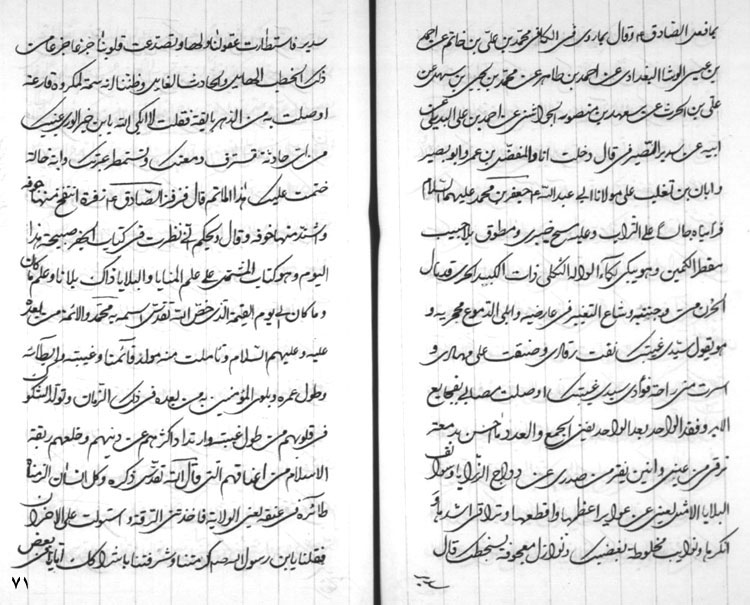 بمافعل الصادق ع وقال بما روى فى الكافى محمد بن على بن حاتم عن احمد
بن عيسى الوشا البغدادى عن احمد بن طاهر عن محمد بن يحيى بن سهل عن
على بن الحرث عن سعد بن منصور الجواشنى عن احمد بن على البديلى عن
ابيه عن سدير الصيرفى قال دخلت انا والمفضل بن عمر وابو بصير
وابان بن تغلب على مولانا ابى عبد الله جعفر بن محمد عليهما السلام
فرأيناه جالسا على التراب وعليه مسح خيبرى ومطوق بلا جيب
مقصر الكمين وهو يبكى بكاء الواله الثكلى ذات الكبد الحرى قد نال
الحزن من وجنتيه وشاع التغيير فى عارضيه وابلى الدموع محجريه و
هو يقول سيدى غيبتك نفت رقادى وضيقت على مهادى و
اسرت منى راحة فؤادى سيدى غيبتك اوصلت مصابى بفجايع
الابد وفقد الواحد بعد الواحد يفنى الجمع والعدد فما احس بدمعة
ترقى من عينى وانين يفتر من صدرى عن دوارج الرزايا وسوالف
البلايا الا مثل بعينى عن غواير اعظمها وافظعها وتراقى اشدها و
انكرها ونوايب مخلوطة بغضبك ونوازل معجونة بسخطك قال
سدير فاستطارت عقولنا ولها وتصدعت قلوبنا جزعا من
ذلك الخطب الهايل والحادث الغايل وظننا انه سمة لمكروهة قارعة
او حلت به من الدهر بايقة فقلت لا ابكى الله يا بن خير الورى عينك
من اى حادثة تستنزف دمعتك وتستمطر عبرتك واية حالة
حتمت عليك هذا الماتم قال فزفر الصادق ع زفرة انتفخ منها جوفه
واشتد منها خوفه وقال ويحكم انى نظرت فى كتاب الجفر صبيحة هذا
اليوم وهو كتاب المشتمل على علم المنايا والبلايا وعلم ما كان
وما يكون الى يوم القيمة الذى خص الله تقدس اسمه به محمد والائمة من بعده
عليه وعليهم السلام وتاملت منه مولد قائمنا وغيبته وابطائه
وطول عمره وبلوى المؤمنين به من بعده فى ذلك الزمان وتولد الشكوك
فى قلوبهم من طول غيبته وارتداد اكثرهم عن دينهم وخلعهم ربقة
الاسلام من اعناقهم التى قال الله تقدس ذكره وكل انسان الزمناه
طائره فى عنقه يعنى الولاية فاخذتنى الرقة واستولت على الاحزان
فقلنا يا بن رسول الله كرمنا وشرفنا باشراكك ايانا فى بعض
٧١